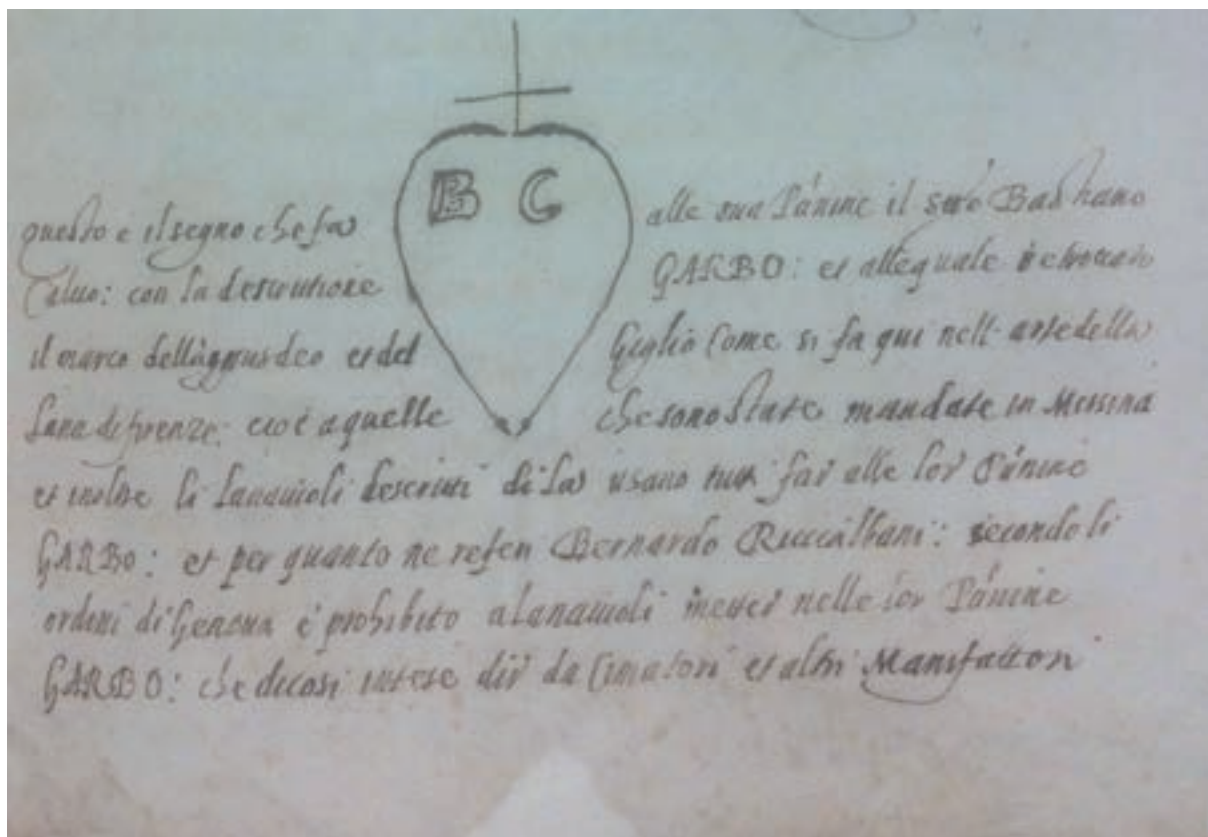 B G
questo è il segno che fa alle sua Pànine il suo Bastiano
Calvo: con la descrittione GARBO: et allequale
il marco dell'agnusdeo et del Giglio come si fa qui nell'arte della
Lana di firenze: cioè a quelle che sono state mandate in Messina
et inoltre li lanaioli descritti di la usano tutti far alle lor Pànine
GARBO: et per quanto ne referi Bernardo secondo li
ordini di Genova è prohibito a lanaiuoli metter nelle lor Pànine
GARBO: che dicosi intese dir da Cimatori et altri Manifattori